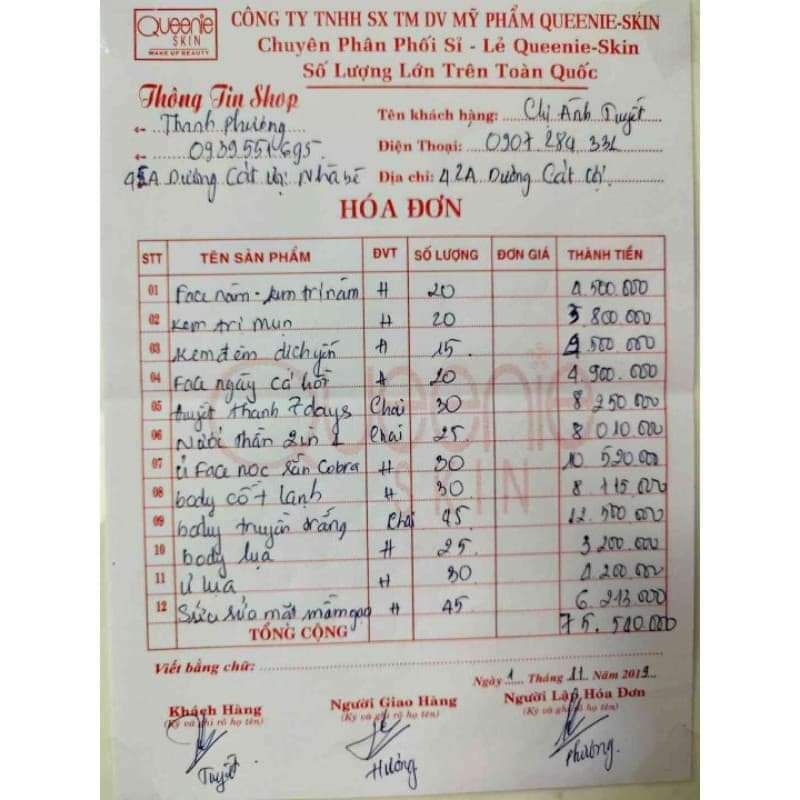 Queenie
SKIN
MAKE UP BEAUTY
CÔNG TY TNHH SX TM DV MỸ PHẨM QUEENIE-SKIN
Chuyên Phân Phối Sỉ - Lẻ Queenie-Skin
Số Lượng Lớn Trên Toàn Quốc
Thông Tin Shop
Thanh Phương
0939551695
42A Dương Cát Lợi Nhà bè
Tên khách hàng: Chị Ánh Tuyết
Điện Thoại: 0907 284 331
Địa chỉ: 42A Dương Cát Lợi
HÓA ĐƠN
STT TÊN SẢN PHẨM ĐVT SỐ LƯỢNG ĐƠN GIÁ THÀNH TIỀN
01 Face nám - kem trị nám H 20 4.500.000
02 Kem trị mụn H 20 3 800 000
03 Kem đêm dịch yến H 15 500 000
04 Face ngày cá hồi H 20 4.900.000
05 huyết thanh 7days Chai 30 8 250 000
06 Nước thần 2in1 Chai 25 8 010 000
07 ủ Face nọc rắn Cobra H 30 10 520 000
08 body cốt lạnh H 30 8 115 000
09 body truyền trắng Chai 45 12 500 000
10 body lụa H 25 3 200 000
11 ủ lụa H 30 200 000
12 Sữa rửa mặt mầm gạo H 45 6 213 000
TỔNG CỘNG 75.510.000
Viết bằng chữ:
Ngày 1 Tháng 11 Năm 2019
Khách Hàng Người Giao Hàng Người Lập Hóa Đơn
(Ký và ghi rõ họ tên) (Ký và ghi rõ họ tên) (Ký và ghi rõ họ tên)
Tuyết Hương Phương
Queenie
SKIN